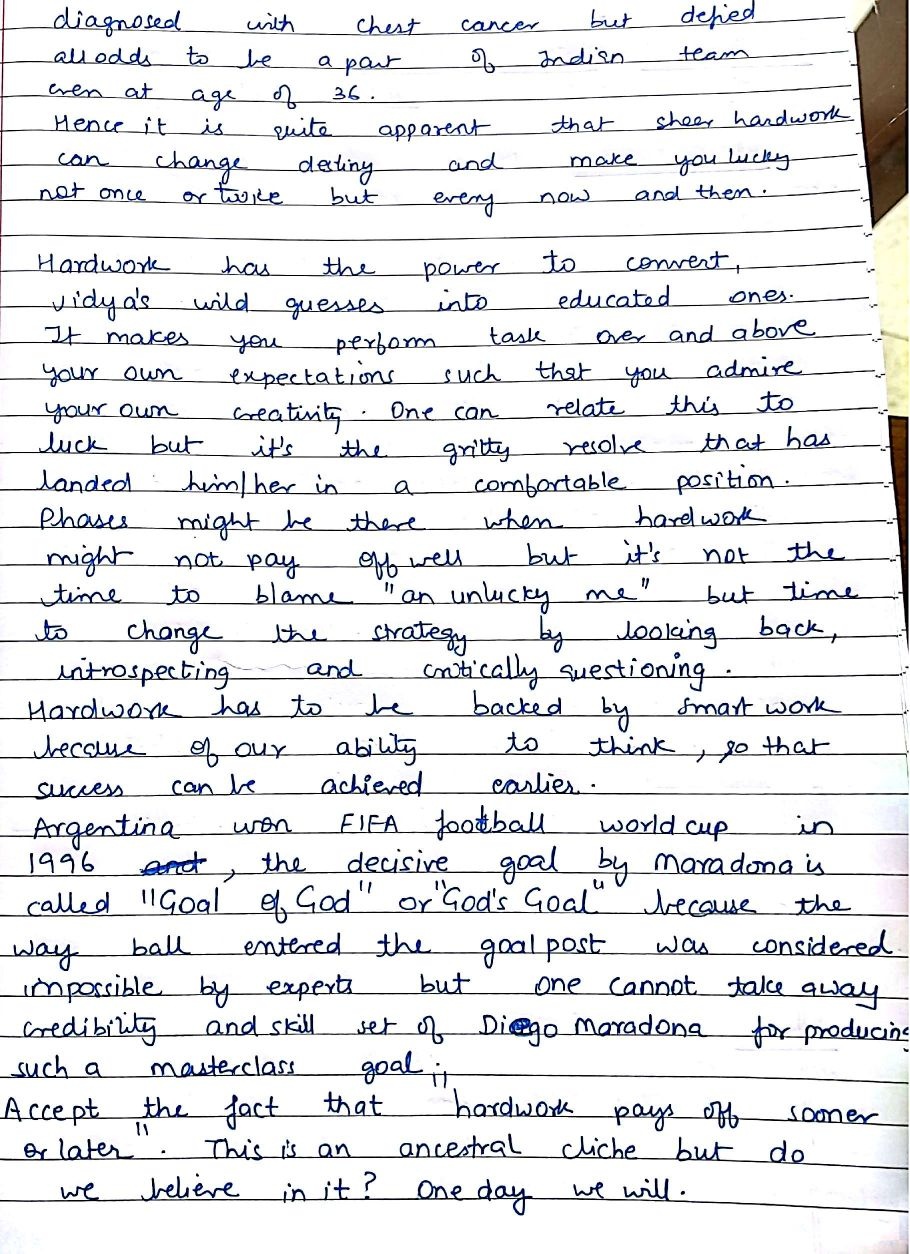 diagnosed with chest cancer but defied
all odds to be a part of Indian team
even at age of 36.
Hence it is quite apparent that sheer hardwork
can change destiny and make you lucky
not once or twice but every now and then.
Hardwork has the power to convert,
vidya's wild guesses into educated ones.
It makes you perform task over and above
your own expectations such that you admire
your own creativity. One can relate this to
luck but it's the gritty resolve that has
landed him/her in a comfortable position.
Phases might be there when hardwork
might not pay off well but it's not the
time to blame "an unlucky me" but time
to change the strategy by looking back,
introspecting and critically questioning.
Hardwork has to be backed by smart work
because of our ability to think, so that
success can be achieved earlier.
Argentina won FIFA football world cup in
1996 and, the decisive goal by Maradona is
called "Goal of God" or "God's Goal" because the
way ball entered the goal post was considered
impossible by experts but one cannot take away
credibility and skill set of Diego Maradona for producing
such a masterclass goal.
Accept the fact that "hardwork pays off sooner
or later". This is an ancestral cliche but do
we believe in it? One day we will.